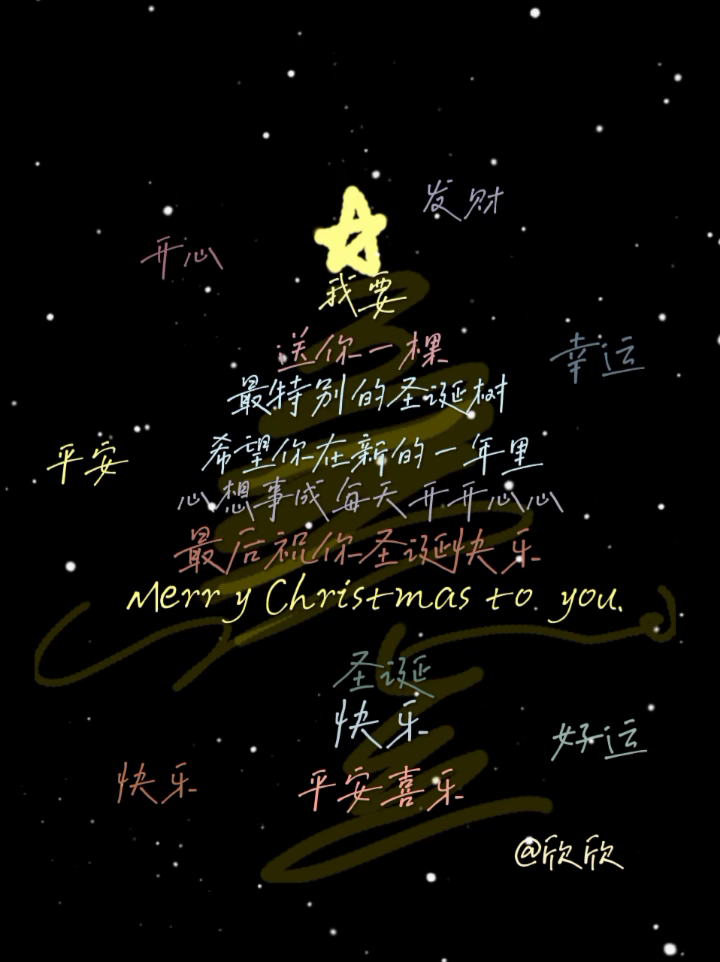 发财
开心
我要
送你一棵
幸运
最特别的圣诞树
平安
希望你在新的一年里
心想事成每天开开心心
最后祝你圣诞快乐
Merry Christmas to you.
圣诞
快乐
好运
快乐
平安喜乐
@欣欣